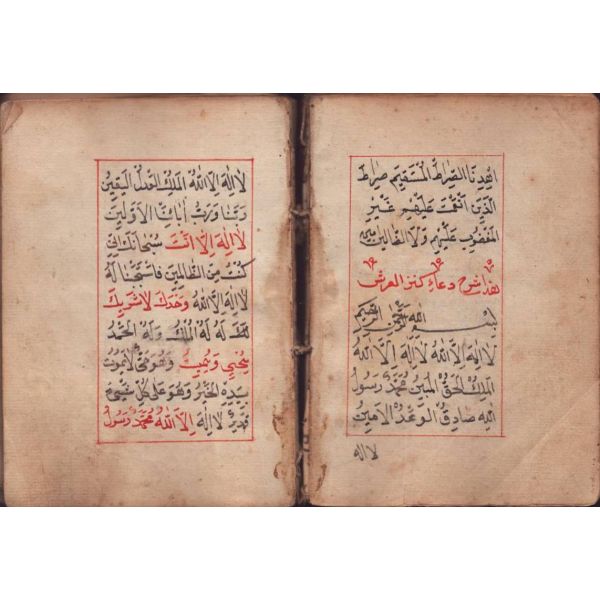 اهدنا الصراط المستقيم صراط
الذين انعمت عليهم غير
المغضوب عليهم ولا الضالين
هذا شرح دعاء كنز العرش
بسم الله الرحمن الرحيم
لا اله الا الله لا اله الا الله
الملك الحق المبين محمد رسول
الله صادق الوعد الامين
لا اله
لا اله الا الله الملك العدل اليقين
ربنا ورب ابائنا الاولين
لا اله الا انت سبحانك اني
كنت من الظالمين فاستجبنا له
لا اله الا الله وحدك لا شريك
له له الملك وله الحمد
يحيي ويميت وهو حي لا يموت
بيده الخير وهو على كل شيء
قدير لا اله الا الله محمد رسول